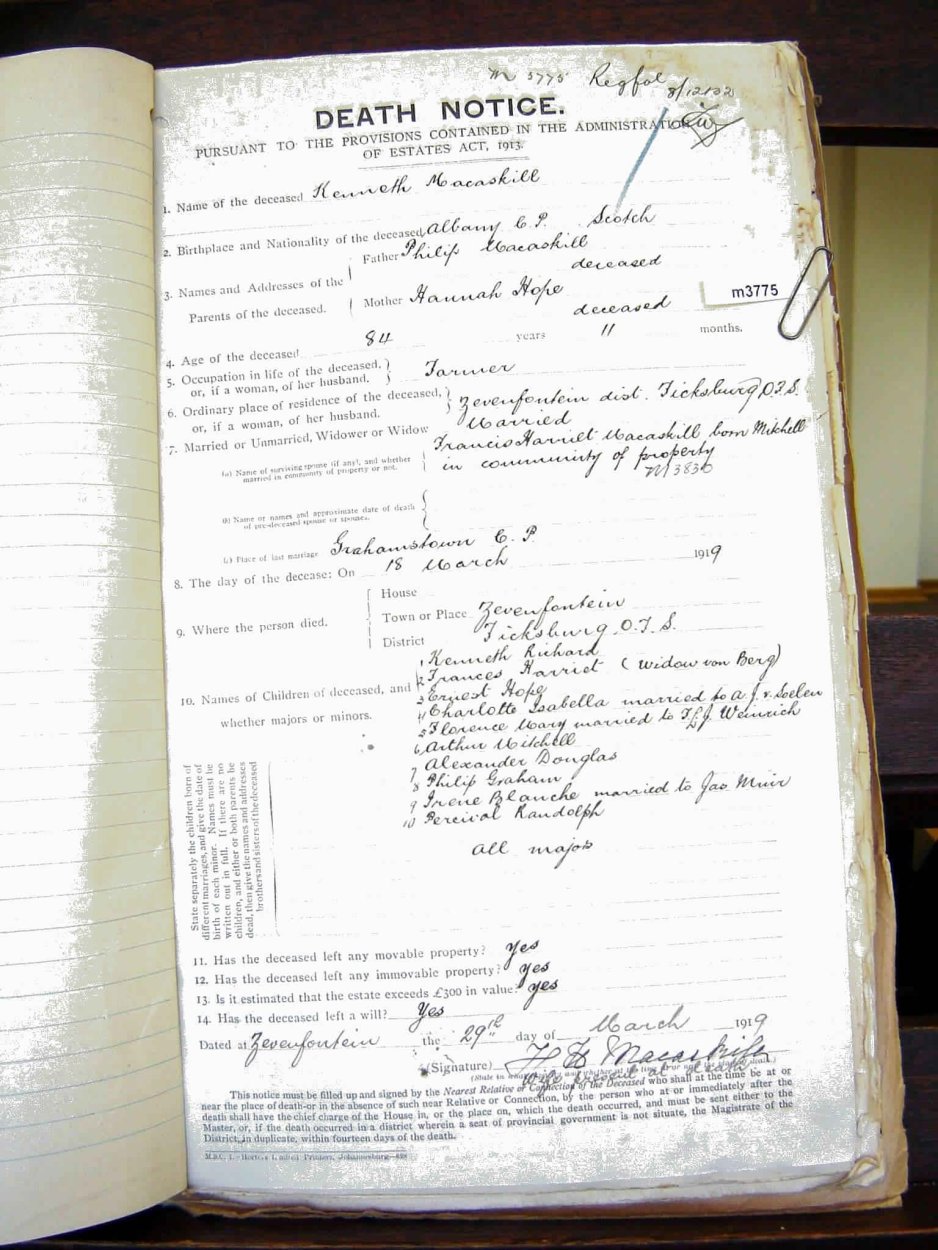 m 3775 Regfol 8/12/22
DEATH NOTICE.
PURSUANT TO THE PROVISIONS CONTAINED IN THE ADMINISTRATION
OF ESTATES ACT, 1913.
1. Name of the deceased Kenneth Macaskill
2. Birthplace and Nationality of the deceased Albany C.P. Scotch
3. Names and Addresses of the Parents of the deceased.
Father Philip Macaskill
deceased
Mother Hannah Hope
deceased
m3775
4. Age of the deceased 84 years 11 months.
5. Occupation in life of the deceased,
or, if a woman, of her husband. Farmer
6. Ordinary place of residence of the deceased,
or, if a woman, of her husband. Zevenfontein dist. Ficksburg O.F.S.
7. Married or Unmarried, Widower or Widow Married
(a) Name of surviving spouse (if any), and whether
married in community of property or not.
Francis Harriet Macaskill born Mitchell
in community of property
M3836
(b) Name or names and approximate date of death
of pre-deceased spouse or spouses.
(c) Place of last marriage Grahamstown C.P.
8. The day of the decease: On 18 March 1919
9. Where the person died.
House
Town or Place Zevenfontein
District Ficksburg O.F.S.
10. Names of Children of deceased, and
whether majors or minors.
1 Kenneth Richard
2 Frances Harriet (Widow von Berg)
3 Ernest Hope
4 Charlotte Isabella married to A.J. v. Soelen
5 Florence Mary married to Weinrich
6 Arthur Mitchell
7 Alexander Douglas
8 Philip Graham
9 Irene Blanche married to Jas Muir
10 Percival Randolph
All majors
State separately the children born of
different marriages, and give the date of
birth of each minor. Names must be
written out in full. If there are no
children, and either or both parents be
dead, then give the names and addresses
brothers and sisters of the deceased
11. Has the deceased left any movable property? Yes
12. Has the deceased left any immovable property? Yes
13. Is it estimated that the estate exceeds £300 in value? yes
14. Has the deceased left a will? Yes
Dated at Zevenfontein the 29th day of March 1919
(Signature) F H Macaskill
wife present at death
This notice must be filled up and signed by the Nearest Relative or Connection of the Deceased who shall at the time be at or
near the place of death—or in the absence of such near Relative or Connection, by the person who at or immediately after the
death shall have the chief charge of the House in, or the place on, which the death occurred, and must be sent either to the
Master, or, if the death occurred in a district wherein a seat of provincial government is not situate, the Magistrate of the
District, in duplicate, within fourteen days of the death.